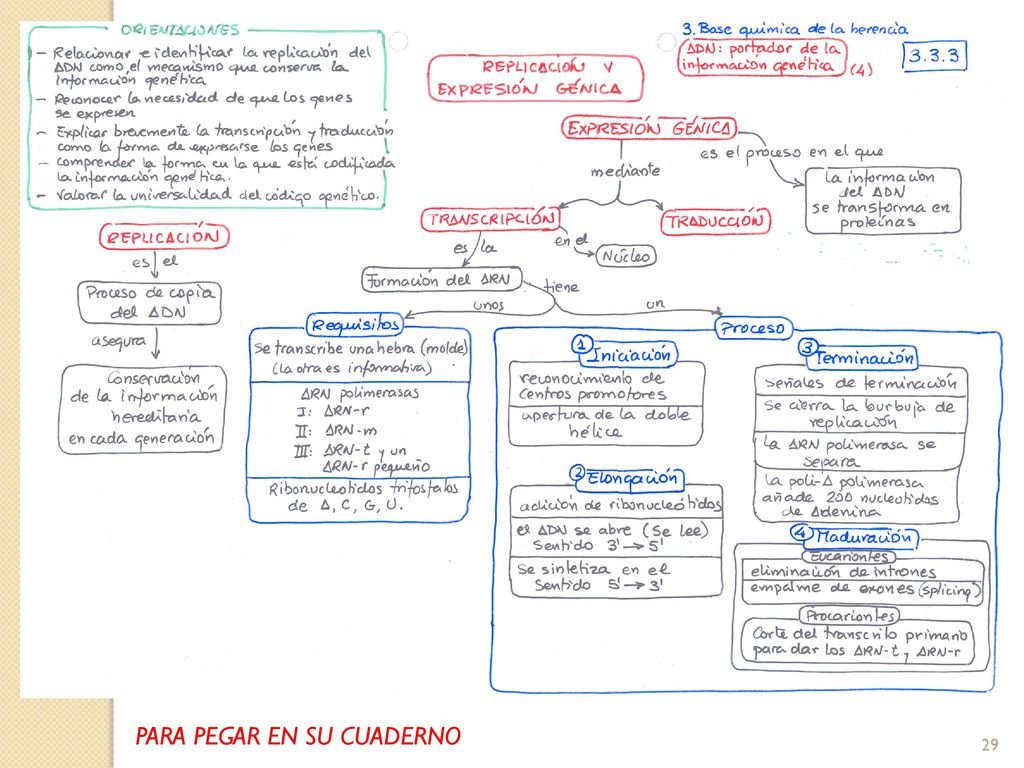 ORIENTACIONES
- Relacionar e identificar la replicación del
ADN como el mecanismo que conserva la
información genética
- Reconocer la necesidad de que los genes
se expresen
- Explicar brevemente la transcripción y traducción
como la forma de expresarse los genes
- comprender la forma en la que está codificada
la información genética.
- Valorar la universalidad del código genético.
3. Base química de la herencia
ADN: portador de la
información genética (4)
3.3.3
REPLICACIÓN Y
EXPRESIÓN GÉNICA
EXPRESIÓN GÉNICA
es el proceso en el que
La información
del ADN
se transforma en
proteínas
mediante
TRANSCRIPCIÓN
TRADUCCIÓN
REPLICACIÓN
es el
Proceso de copia
del ADN
asegura
Conservación
de la información
hereditaria
en cada generación
es la
en el
Núcleo
Formación del ARN
tiene
unos
un
Requisitos
Se transcribe una hebra (molde)
(La otra es informativa)
ARN polimerasas
I: ARN-r
II: ARN-m
III: ARN-t y un
ARN-r pequeño
Ribonucleótidos trifosfatos
de A, C, G, U.
Proceso
1 Iniciación
reconocimiento de
centros promotores
apertura de la doble
hélice
2 Elongación
adición de ribonucleótidos
el ADN se abre (Se lee)
Sentido 3'→5'
Se sintetiza en el
Sentido 5'→3'
3 Terminación
Señales de terminación
Se cierra la burbuja de
replicación
La ARN polimerasa se
separa
La poli-A polimerasa
añade 200 nucleótidos
de Adenina
4 Maduración
Eucariontes
eliminación de intrones
empalme de exones (splicing)
Procariontes
Corte del transcrito primario
para dar los ARN-t y ARN-r
PARA PEGAR EN SU CUADERNO
29